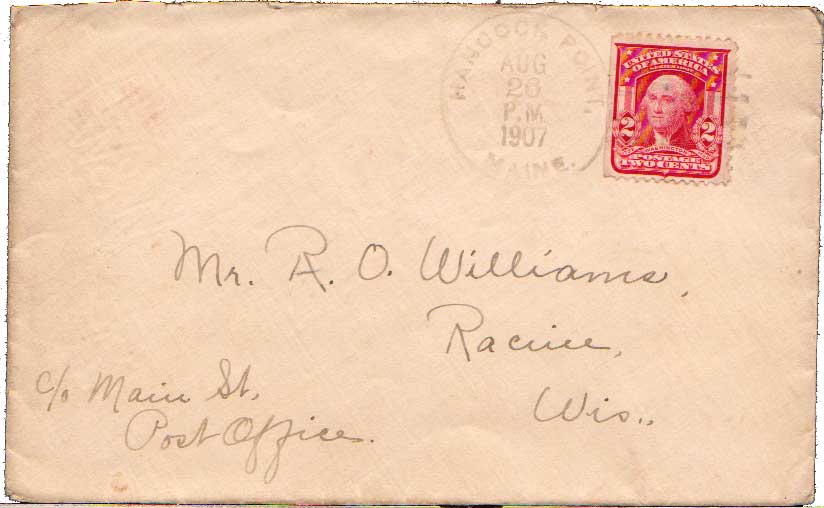 HANCOCK POINT,
AUG
26
P.M.
1907
MAINE.
UNITED STATES
OF AMERICA
2 2
WASHINGTON
POSTAGE
TWO CENTS
Mr. R. O. Williams,
Racine,
Wis.,
c/o Main St.
Post Office.